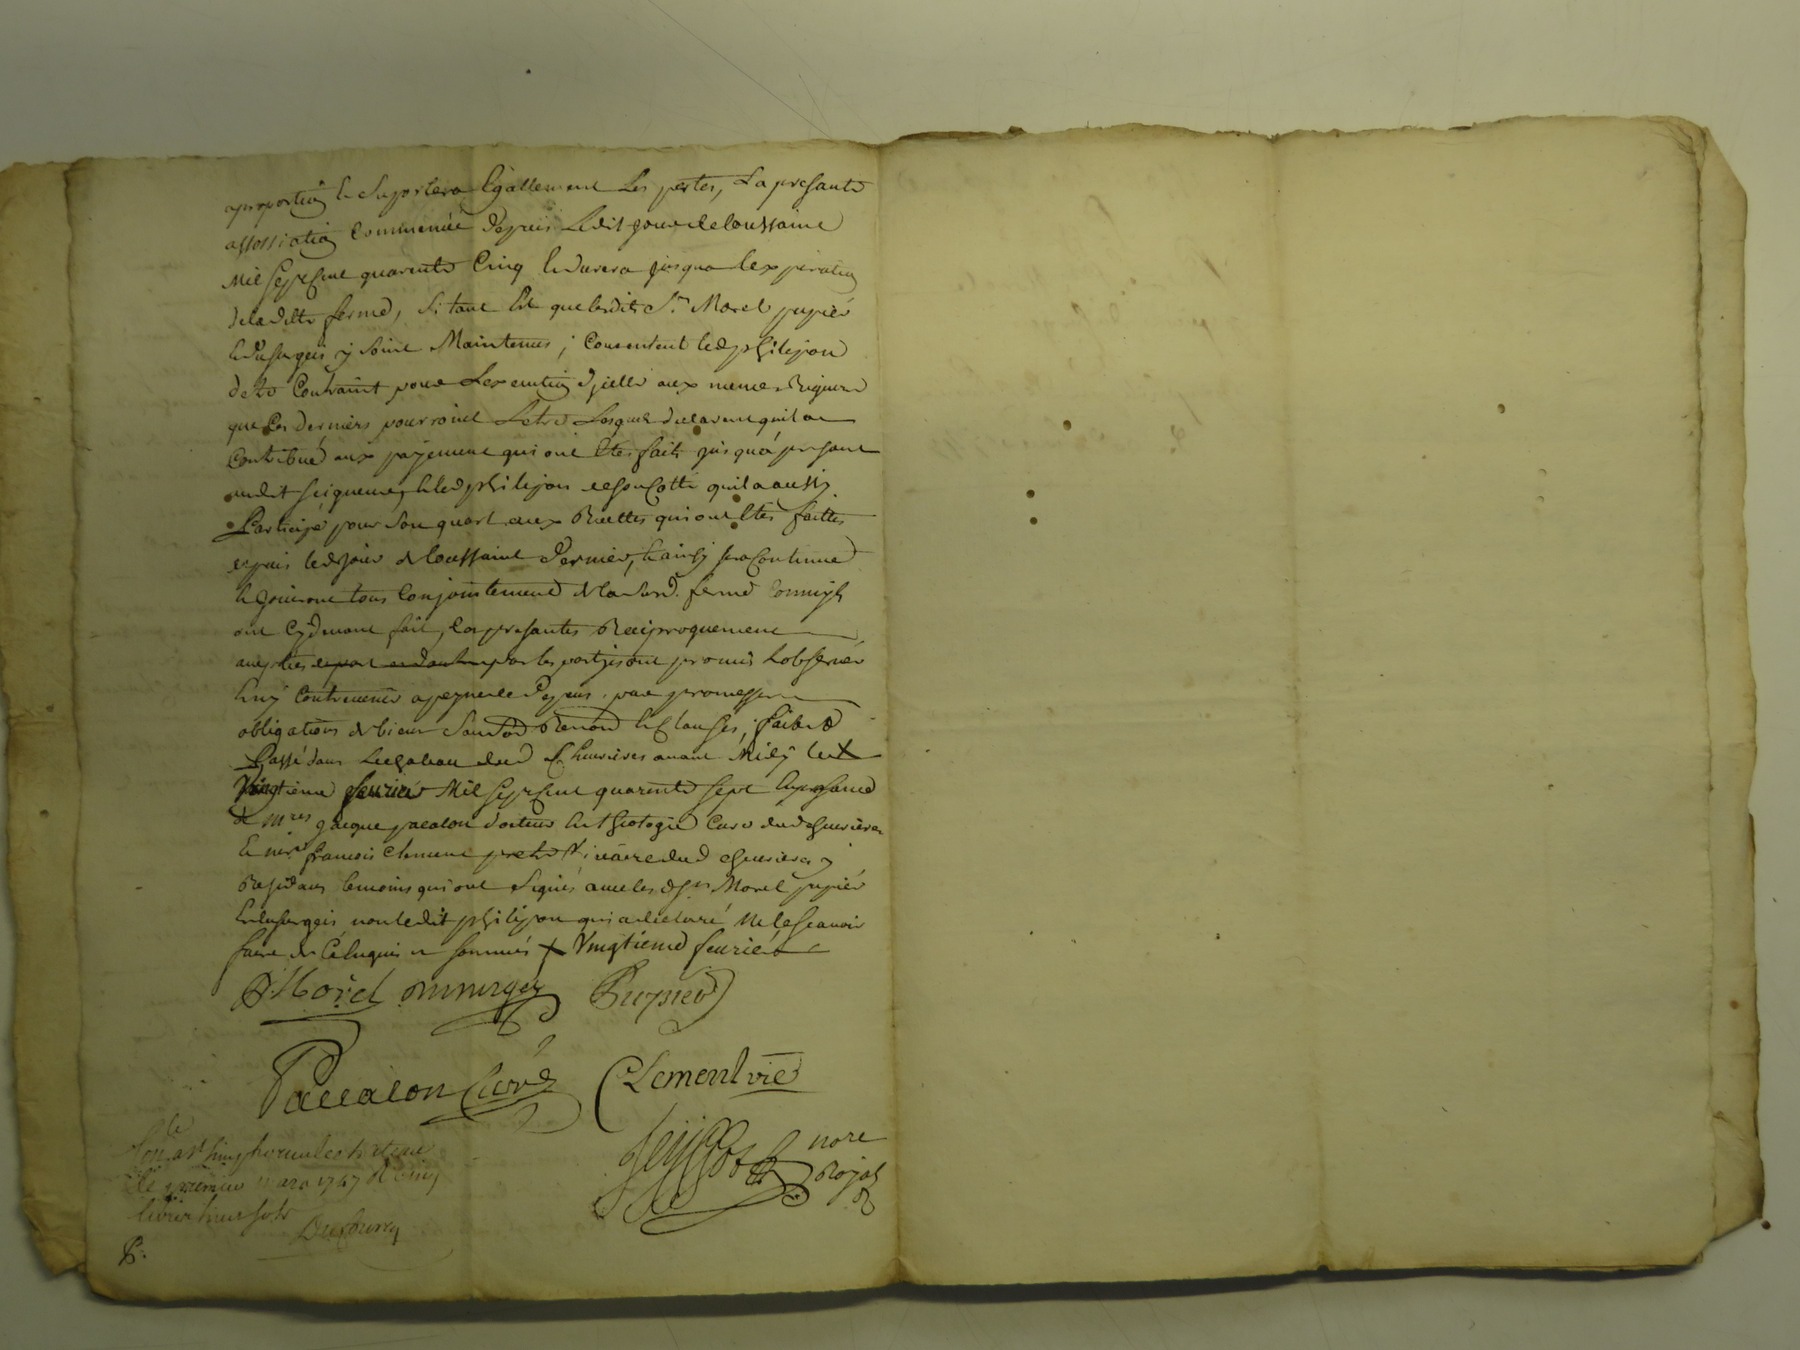 aproportion et suportera Egallement Les pertes, La presante
assossiation Commencée Depuis Ledit jour de toussaint
Mil sept Cent quarente Cinq et durera jusqua lexpiration
de la ditte ferme, si tant Est que lesdits Srs Morel pupier
y soint Maintenus; Consentent led philipon
detre Contraint pour Lexecution dicelle aux meme Rigueurs
que Ces derniers pourroint Letre Lesquels declarent quil a
Contribué aux payement qui ont Etes faits jusqua presant
audit seigneur, et led philipon de son Cotté quil a aussy
Participé pour son quart aux Recettes qui ont Etes faittes
depuis led jour de toussaint Dernier, et ainsy sera Continué
et jouiront tous Conjointement de la susd. ferme Comme ils
ont Cydevant fait, les presantes Reciproquement
acceptées par les parties ont promis et observer
et ny Contrevenir a peyne de Depens, par promesse
obligations de biens Renond et Clauses; fait et
Passé dans le Chateau dud Chevrieres avant Midy le
Vingtieme fevrier Mil sept Cent quarente sept En presance
de mres jacque pacalon docteur En theologie Curé dud chevrieres
Et mre francois Clement pretre vicaire dud chevrieres y
Residans temoins qui ont signés avec lesd srs Morel pupier
non ledit philipon qui a declaré Ne le scavoir
faire de Ce Enquis et sommés + Vingtieme fevrier
Morel Pupier
Paccalon Curé Clement vic
nore
Royal
le premier mars 1747
livres